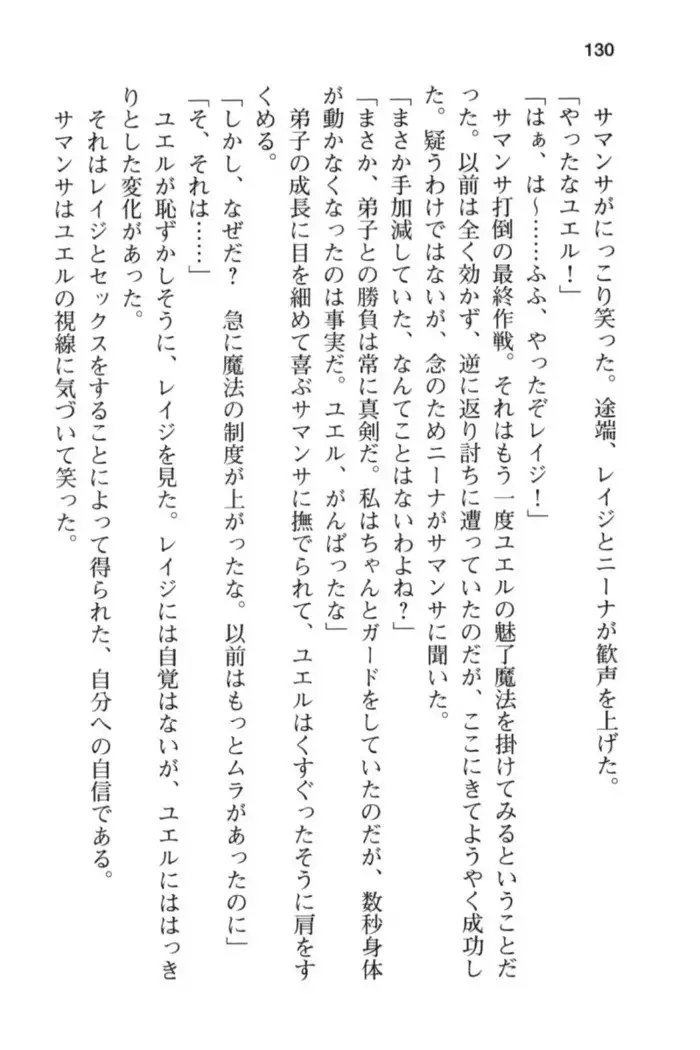 130
サマンサがにっこり笑った。途端、レイジとニーナが歓声を上げた。
「やったなユエル！」
「はぁ、は〜……ふふ、やったぞレイジ！」
サマンサ打倒の最終作戦。それはもう一度ユエルの魅了魔法を掛けてみるということだ
った。以前は全く効かず、逆に返り討ちに遭っていたのだが、ここにきてようやく成功し
た。疑うわけではないが、念のためニーナがサマンサに聞いた。
「まさか手加減していた、なんてことはないわよね？」
「まさか、弟子との勝負は常に真剣だ。私はちゃんとガードをしていたのだが、数秒身体
が動かなくなったのは事実だ。ユエル、がんばったな」
弟子の成長に目を細めて喜ぶサマンサに撫でられて、ユエルはくすぐったそうに肩をす
くめる。
「しかし、なぜだ？　急に魔法の制度が上がったな。以前はもっとムラがあったのに」
「そ、それは……」
ユエルが恥ずかしそうに、レイジを見た。レイジには自覚はないが、ユエルにははっき
りとした変化があった。
それはレイジとセックスをすることによって得られた、自分への自信である。
サマンサはユエルの視線に気づいて笑った。